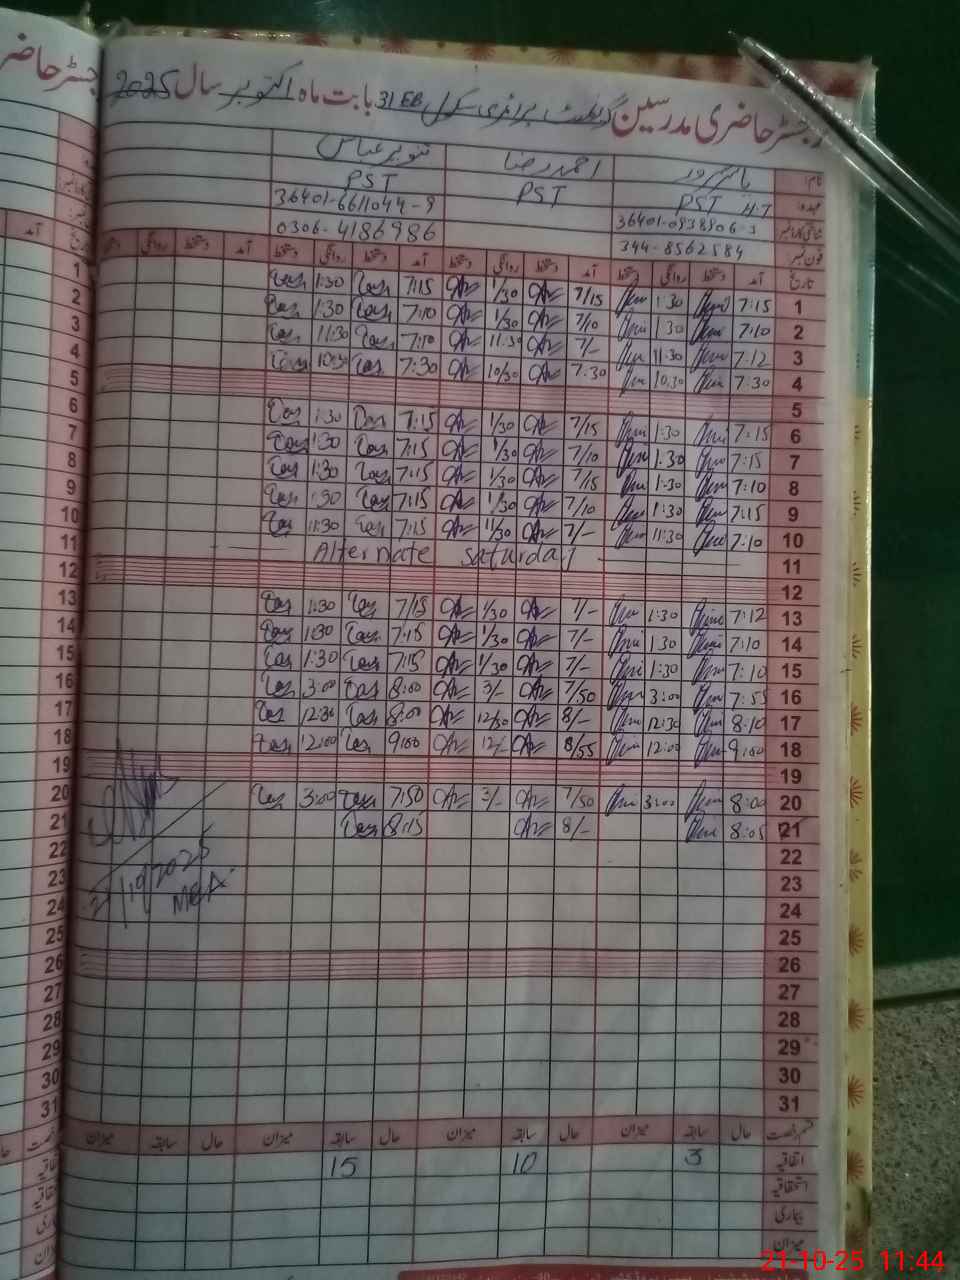 رجسٹر حاضری مدرسین گورنمنٹ پرائمری سکول 31 EB بابت ماہ اکتوبر سال 2025
نام: یاسر سرور احمد رضا تنویر عباس
عہدہ PST H.T PST PST
شناختی کارڈ نمبر 36401-6611044-9
فون نمبر 344-8562584 0306-4186986
تاریخ آمد دستخط روانگی دستخط آمد دستخط روانگی دستخط آمد دستخط روانگی دستخط آمد دستخط روانگی
1 7:15 1:30 7/15 1/30 7:15 1:30
2 7:10 1:30 7/10 1/30 7:10 1:30
3 7:12 11:30 7/- 11:30 7:10 11:30
4 7:30 10:30 7:30 10/30 7:30 10:30
5
6 7:15 1:30 7/15 1/30 7:15 1:30
7 7:15 1:30 7/10 1/30 7:15 1:30
8 7:10 1:30 7/15 1/30 7:15 1:30
9 7:15 1:30 7/10 1/30 7:15 1:30
10 7:10 11:30 7/- 11/30 7:15 11:30
11 Alternate saturday
12
13 7:12 1:30 7/- 1/30 7/15 1:30
14 7:10 1:30 7/- 1/30 7:15 1:30
15 7:10 1:30 7/- 1/30 7:15 1:30
16 7:55 3:00 7/50 3/- 8:00 3:00
17 8:10 12:30 8/- 12/30 8:00 12:30
18 9:00 12:00 8/55 12/- 9:00 12:00
19
20 8:00 3:00 7/50 3/- 7:50 3:00
21 8:05 8/- 8:15
22
23
24
25
26
27
28
29
30
31
21/10/2025
MEA
قسم رخصت حال سابقہ میزان حال سابقہ میزان حال سابقہ میزان حال سابقہ میزان
اتفاقیہ 3 10 15
استحقاقیہ
بیماری
میزان
21-10-25 11:44